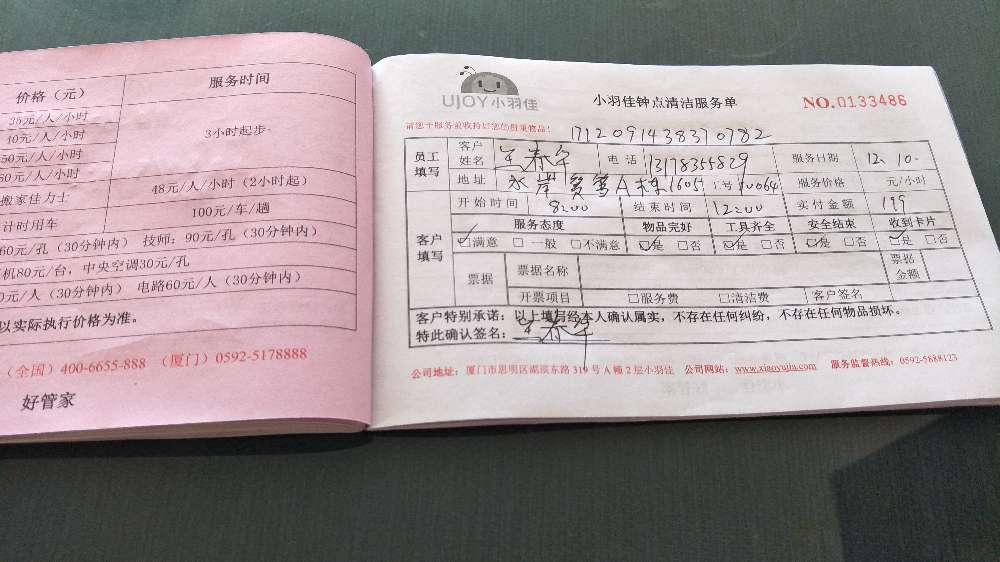 价格（元）
服务时间
35元/人/小时
40元/人/小时
50元/人/小时
60元/人/小时
3小时起步
搬家佳力士
48元/人/小时（2小时起）
计时用车
100元/车/趟
60元/孔（30分钟内） 技师：90元/孔（30分钟内）
机80元/台，中央空调30元/孔
0元/人（30分钟内） 电路60元/人（30分钟内）
以实际执行价格为准。
（全国）400-6655-888 （厦门）0592-5178888
好管家
UJOY小羽佳
小羽佳钟点清洁服务单
NO.0133486
请您于服务前收拾好您的贵重物品！
171209143830782
员工填写
客户姓名 王春华 电话 13178355829 服务日期 12.10.
地址 A栋1605 服务价格 元/小时
开始时间 8:00 结束时间 12:00 实付金额 199
客户填写
服务态度 物品完好 工具齐全 安全结束 收到卡片
☑满意 □一般 □不满意 ☑是 □否 ☑是 □否 ☑是 □否 ☑是 □否
票据 票据名称 票据金额
开票项目 □服务费 □清洁费 客户签名
客户特别承诺：以上填写经本人确认属实，不存在任何纠纷，不存在任何物品损坏。
特此确认签名：王春华
公司地址：厦门市思明区湖滨东路319号A幢2层小羽佳 公司网站：www.xiaoyujia.com 服务监督热线：0592-5888123